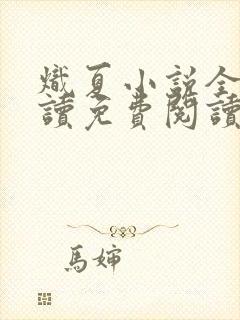 熾夏小說全
讀免費閱讀
馬嬸